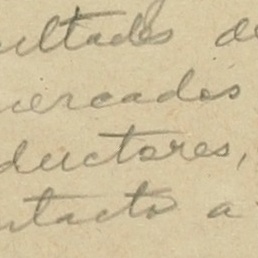 ultades de
mercados
ductores,
ntacto a